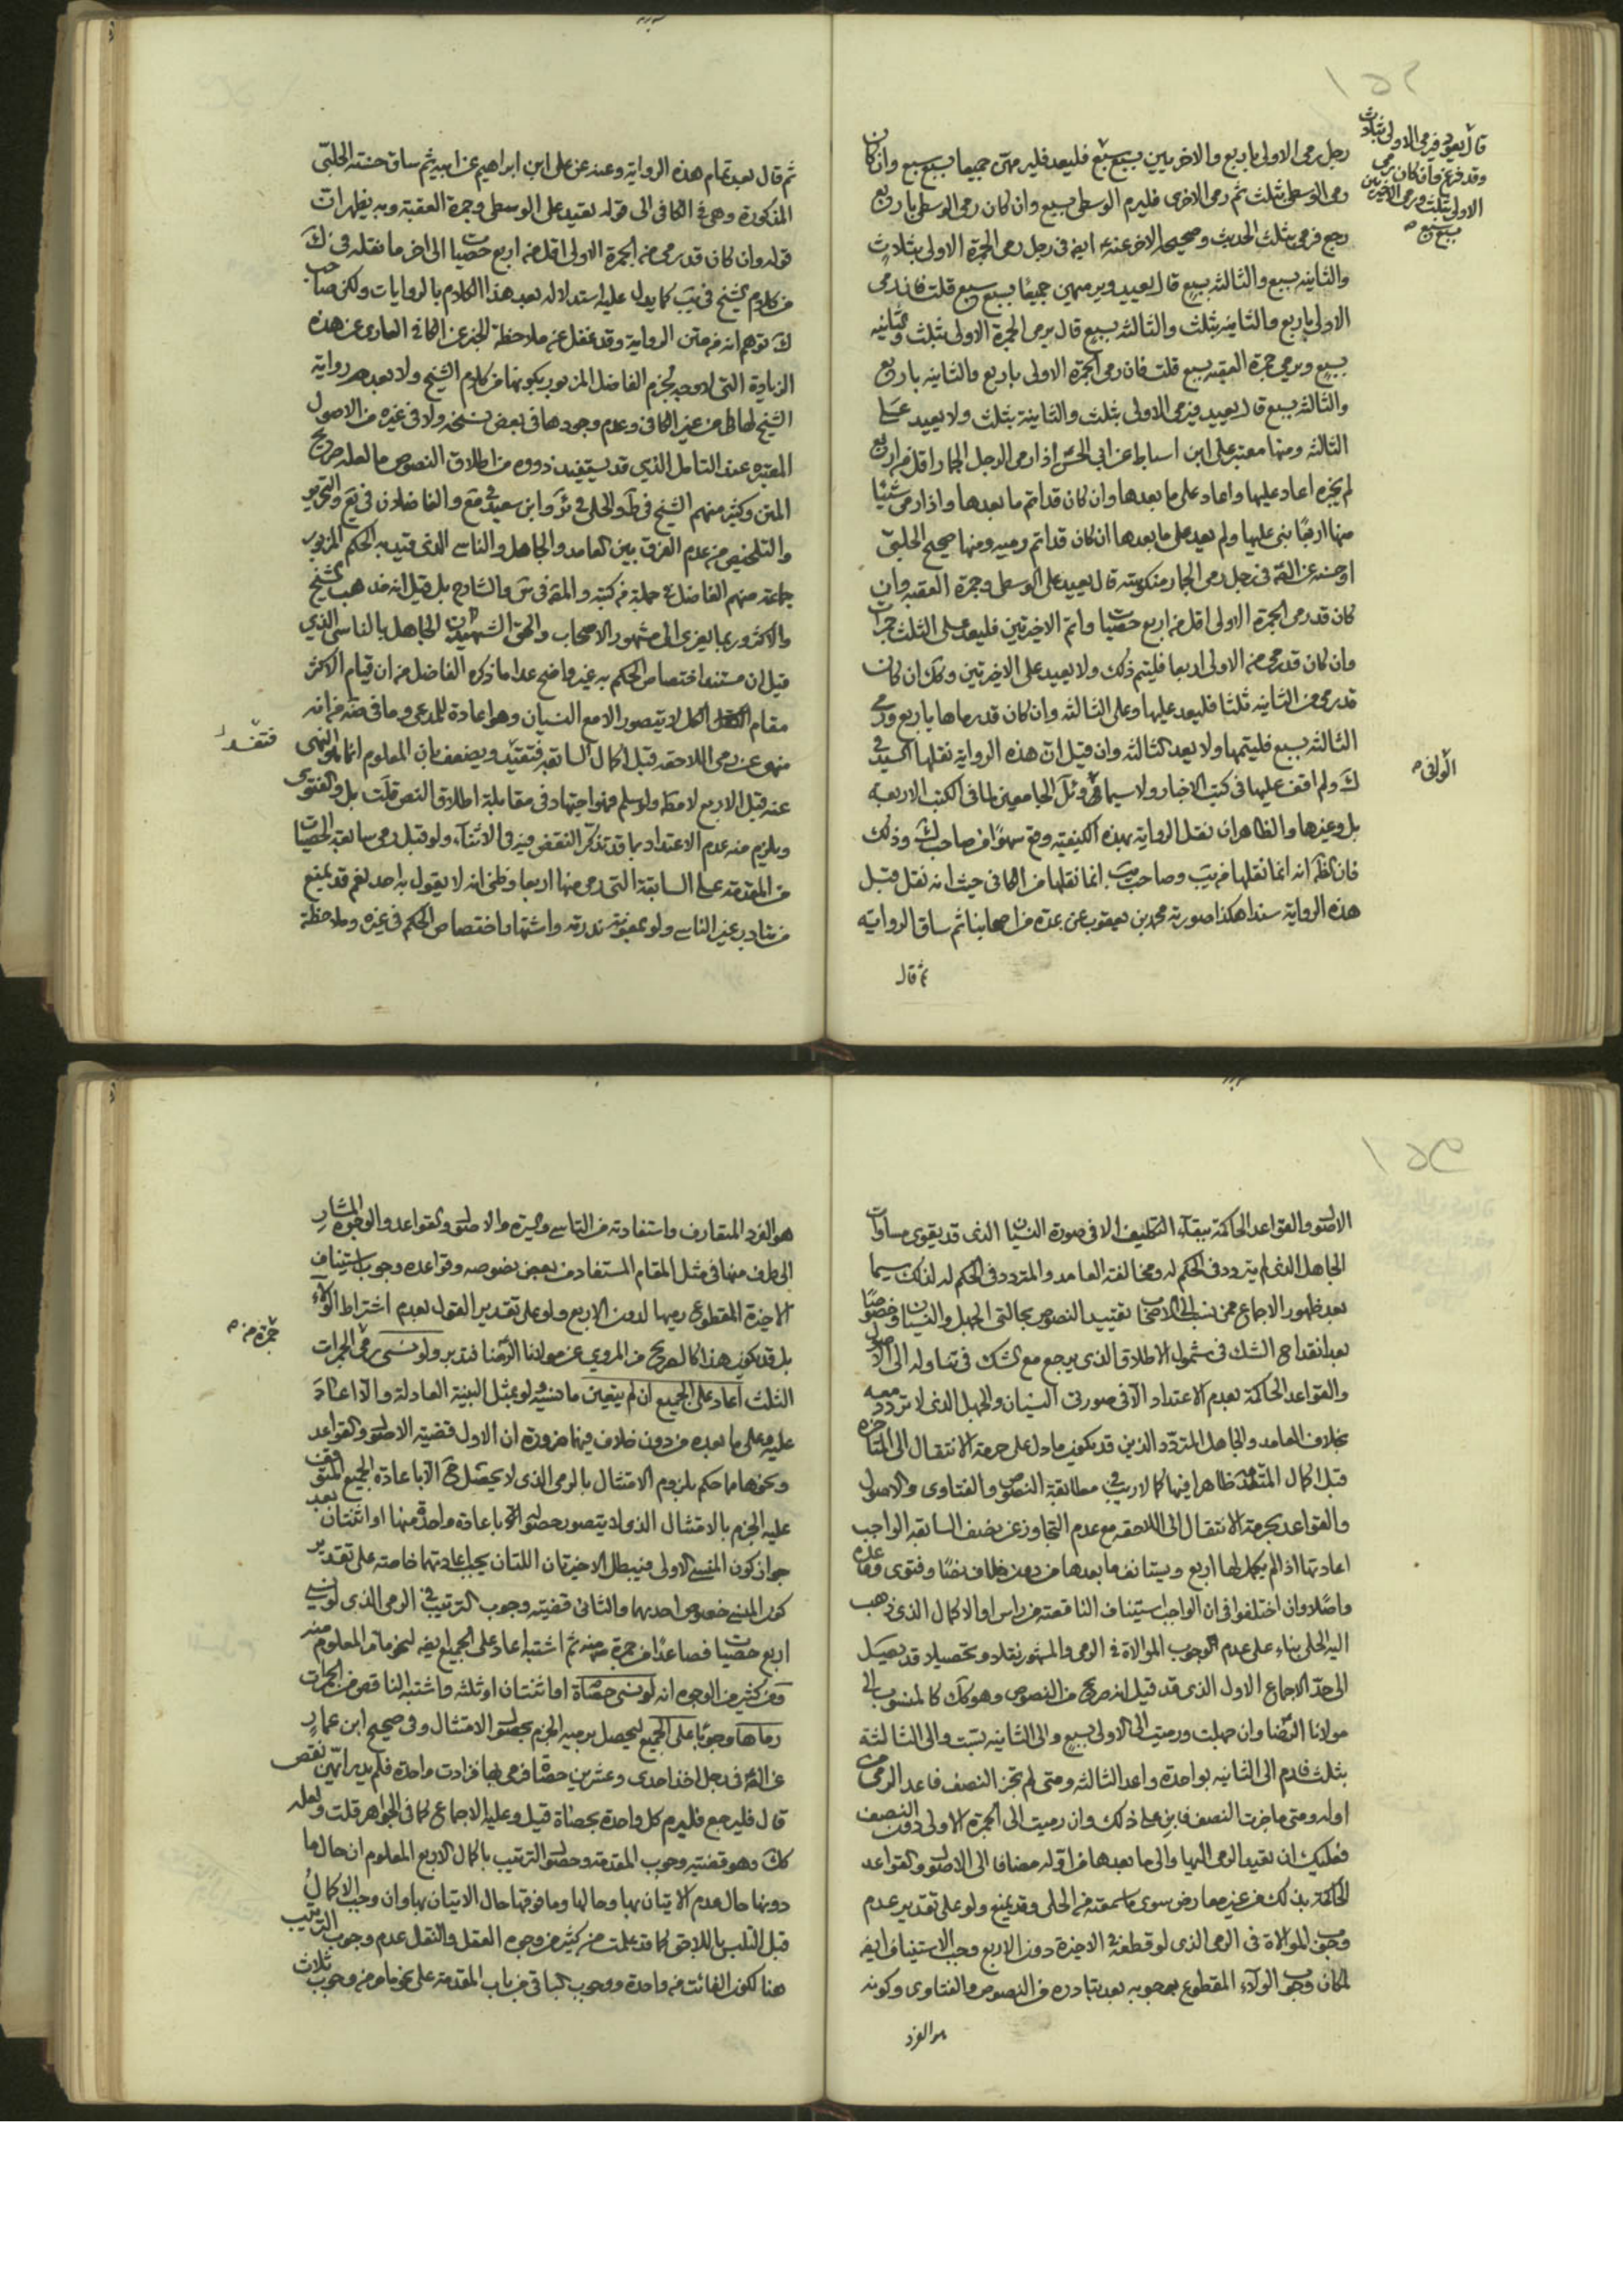 ١٥٢
قال يعود فيرمى الاولى بثلاث
وقد فرغ وان كان رمى
الاولى بثلث ورمى الاخيرتين
بسبع سبع
رجل رمى الاولى باربع والاخريين بسبع سبع فليعد فليرمهن جميعا بسبع سبع وان كان
رمى الوسطى بثلث ثم رمى الاخرى فليرم الوسطى بسبع وان كان رمى الوسطى باربع
رجع فرمى بثلث الحديث وصحيحه الاخر عنه ايضه فى رجل رمى الجمرة الاولى بثلاث
والثانيه بسبع والثالثه بسبع قال يعيد ويرميهن جميعًا بسبع سبع قلت فان رمى
الاولى باربع والثانيه بثلث والثالثه بسبع قال يرمى الجمرة الاولى بثلث والثانيه
بسبع ويرمى جمرة العقبه بسبع قلت فان رمى الجمرة الاولى باربع والثانيه باربع
والثالثه بسبع قال يعيد فيرمى الاولى بثلث والثانية بثلث ولا يعيد على
الثالثه ومنها معتبر على ابن اسباط عن ابى الحسن اذا رمى الرجل الجمار اقل من اربع
لم يجزه اعاد عليها واعاد على ما بعدها وان كان قد اتم ما بعدها واذا رمى شيئا
منها اربعًا بنى عليها ولم يعد على ما بعدها ان كان قد اتم رميه ومنها صحيح الحلبى
او حسنه عن الصه فى رجل رمى الجمار منكوسة قال يعيد على الوسطى وجمرة العقبه وان
كان قد رمى الجمرة الاولى اقل من اربع حصيات واتم الاخيرتين فليعد على الثلث جمرات
وان كان قد رمى من الاولى اربعا فليتم ذلك ولا يعيد على الاخيرتين وكك ان كان
قد رمى من الثانيه ثلثا فليعد عليها وعلى الثالثه وان كان قد رماها باربع ورمى
الثالثه بسبع فليتمها ولا يعد الثالثه وان قيل ان هذه الرواية نقلها السيد فى
ك ولم اقف عليها فى كتب الاخبار ولا سيما فى وئل الجامعين لما فى الكتب الاربعه
الوافى
بل وغيرها والظاهر ان نقل الرواية بهذه الكيفيه وقع سهوًا من صاحب ك وذلك
فان الظم انه انما نقلها من يب وصاحب يب انما نقلها من الكافى حيث انه نقل قبل
هذه الرواية سندا هكذا صورته محمد بن يعقوب عن عدة من اصحابنا ثم ساق الرواية
ثم قال
ثم قال بعد تمام هذه الرواية وعنه عن على ابن ابراهيم عن ابيه ثم ساق حسنة الحلبى
المذكورة وهى فى الكافى الى قوله يعيد على الوسطى وجمرة العقبة وبه يظهر ان
قوله وان كان قد رمى من الجمرة الاولى اقل من اربع حصيات الى اخر ما نقله فى ك
من كلام الشيخ فى يب كما يدل عليه استدلاله بعد هذا الكلام بالروايات ولكن صاحب
ك توهم انه من متن الرواية وقد غفل عن ملاحظة الخبر عن الكافى العارى عن هذه
الزيادة التى لا وجه لجزم الفاضل المزبور بكونها من كلام الشيخ ولا يعد رواية
الشيخ لها من غير الكافى وعدم وجودها فى بعض نسخه ولا فى غيره من الاصول
المعتبره عند التامل الذي قد يستفيد ذووه من اطلاق النصوص ما لعله صريح
المتن وكثير منهم الشيخ فى ط والحلى فى ئر وابن سعيد فى مع والفاضلان فى يع والتحرير
والتلخيص من عدم الفرق بين العامد والجاهل والناسى الذى قيد به الحكم المزبور
جماعة منهم الفاضل فى جملة من كتبه والمقه فى ش والشارح بل قيل انه مذهب الشيخ
والاكثر وربما يعزى الى مشهور الاصحاب والحق الشهيدان الجاهل بالناسى الذي
قيل ان مستند اختصاص الحكم به غير واضح عدا ما ذكره الفاضل من ان قيام الاكثر
مقام الكل لا يتصور الا مع النسيان وهو اعادة للمدعى وما فى ضه من انه
منهى عن رمى اللاحقه قبل اكمال السابقه فتقيد ويضعف بان المعلوم انما هو النهى
فتفسد
عنه قبل الاربع لا مطه ولو سلم فهو اجتهاد فى مقابلة اطلاق النص قلت بل والفتوى
ويلزم منه عدم الاعتداد بما قد تذكر النقص فيه فى الاثناء ولو قبل رمى سابعة الحصيات
من المقدمة على السابقة التى رمى منها اربعا وظنى انه لا يقول به احد نعم قد يمنع
من تبادر غير الناسى ولو بمعونة ندرته واشتهار اختصاص الحكم فى غيره وملاحظة
١٥٣
الاصول والقواعد الحاكمة ببقاء التكليف الا فى صورة النسيان الذى قد يقوى مساوات
الجاهل الذى لم يتردد فى الحكم له ومخالفته العامد والمتردد فى الحكم له لذلك سيما
بعد ظهور الاجماع ممن نسب الى الاصحاب تقييد النصوص بحالتى الجهل والنسيان وخصوصًا
بعد انقداح الشك فى شمول الاطلاق الذى يرجع مع الشك فى تناوله الى الاصول
والقواعد الحاكمة بعدم الاعتداد الا فى صورتى النسيان والجهل الذى لا تردد معه
بخلاف العامد والجاهل المتردد الذين قد يكون ما دل على حرمة الانتقال الى المتاخره
قبل اكمال المتقدمة ظاهرا فيها كما لا ريب فى مطابقة النصوص والفتاوى والاصول
والقواعد بحرمة الانتقال الى اللاحقه مع عدم التجاوز عن نصف السابقه الواجب
اعادتها اذا لم يكمل لها اربع ويستانف ما بعدها من دون خلاف نصًا وفتوى وقاعدة
واصلا وان اختلفوا فى ان الواجب استيناف الناقصة من راس او الاكمال الذى ذهب
اليه الحلى بناء على عدم الوجوب الموالاة فى الرمى والمشهور نقلا وتحصيلا قد يصل
الى حد الاجماع الاول الذى قد قيل انه صريح من النصوص وهو كك كالمنسوب الى
مولانا الرضا وان جهلت ورميت الى الاولى بسبع والى الثانيه بست والى الثالثة
بثلث فارم الى الثانيه بواحدة واعد الثالثه ومتى لم تجز النصف فاعد الرمى من
اوله ومتى ما جزت النصف فابن على ذلك وان رميت الى الجمرة الاولى دون النصف
فعليك ان تعيد الرمى اليها والى ما بعدها من اوله مضافا الى الاصول والقواعد
الحاكمة بذلك من غير معارض سوى ما سمعته من الحلى وقد يمنع ولو على تقدير عدم
وجوب الموالاة فى الرمى الذى لو قطعه فى الاخيرة دون الاربع وجب الاستيناف ايضه
لمكان وجوب الولاء المقطوع بوجوبه بعد تبادره من النصوص والفتاوى وكونه
هو الفرد
هو الفرد المتعارف واستفادته من التاسى والسيرة والاصول والقواعد والوجوه المشار
الى طرف منها فى مثل المقام المستفاد من بعض نصوصه وقواعده وجوب استيناف
الاخيرة المقطوع رميها لدون الاربع ولو على تقدير القول بعدم اشتراط الولاء
بل قد يكون هذا كالصريح من المروي عن مولانا الرضا فتدبر ولو نسى رمى الجمرات
جمرة من
الثلث اعاد على الجميع ان لم يتعين ما نسيه ولو بمثل البينة العادلة والا اعاد
عليه وعلى ما بعده من دون خلاف فيهما ضرورة ان الاول قضية الاصول والقواعد
ونحوها مما حكم بلزوم الامتثال بالرمى الذى لا يحصل الا باعادة الجميع المتوقف
عليه الجزم بالامتثال الذى لا يتصور حصوله باعادة واحدة منها او اثنتان بعد
جواز كون المنسى الاولى فيبطل الاخيرتان اللتان يجب اعادتهما خاصة على تقدير
كون المنسى خصوص احديهما والثانى قضية وجوب الترتيب فى الرمى الذى لو نسى
اربع حصيات فصاعدًا من جمرة منه ثم اشتبه اعاد على الجميع ايضه لنحو ما المعلوم منه
ومن كثير من الوجوه انه لو نسى حصاة او اثنتان او ثلثه واشتبه الناقص من الجمرات
رماها وجوبًا على الجميع ليحصل برميه الجزم بحصول الامتثال وفى صحيح ابن عمار
عن الصه فى رجل اخذ احدى وعشرين حصاة فرمى بها فزادت واحدة فلم يدر ايهن نقص
قال فليرجع فليرم كل واحدة بحصاة قيل وعليه الاجماع كما فى الجواهر قلت ولعله
كك وهو قضية وجوب المقدمة وحصول الترتيب باكمال الاربع المعلوم ان حال ما
دونها حال عدم الاتيان بها وحالها وما فوقها حال الاتيان بها وان وجب الاكمال
قبل التلبس باللاحق كما قد علمت من كثير من وجوه العقل والنقل عدم وجوب الترتيب
هنا لكون الفائت من واحدة ووجوب الباقى من باب المقدمة على نحو ما مر من وجوب ثلاث